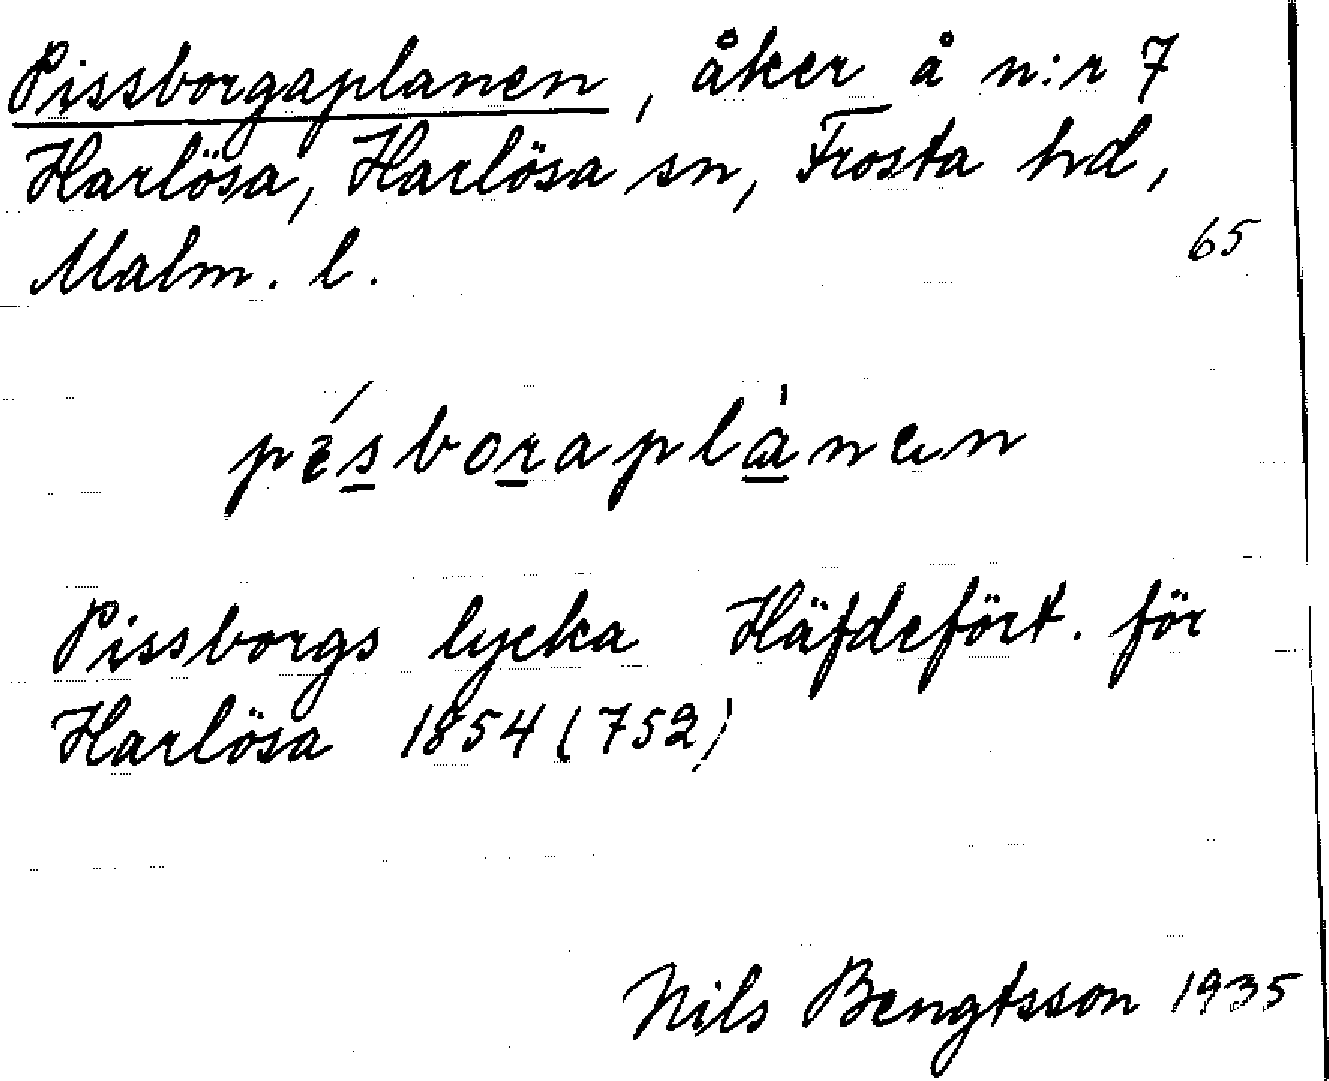 Pissborgaplanen, åker å n:r 7
Harlösa, Harlösa sn, Frosta hd,
Malm. l.
65
pésboraplánen
Pissborgs lycka Häfdefört. för
Harlösa 1854 (752)
Nils Bengtsson 1935